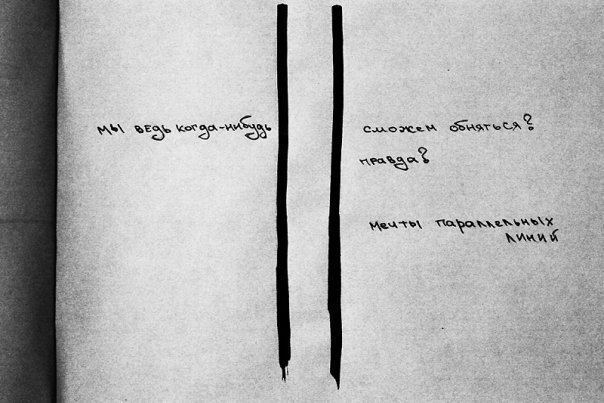 мы ведь когда-нибудь сможем обняться?
правда?
мечты параллельных
линий